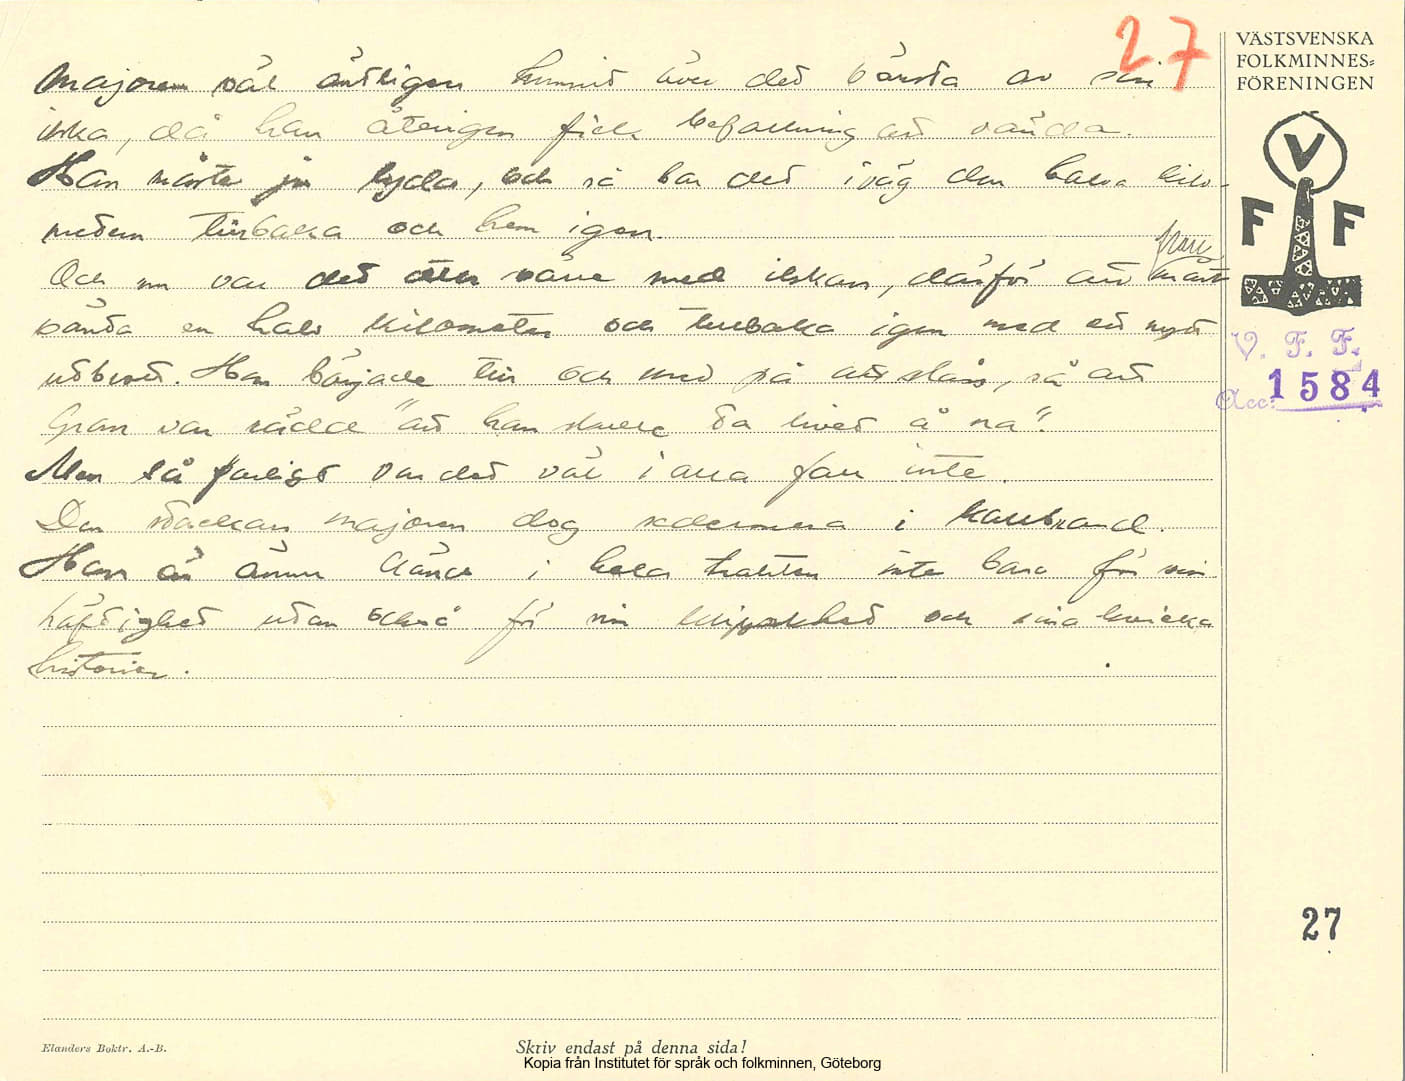 27
majoren väl äntligen hunnit över det värsta av sin
ilska, då han återigen fick befallning att vända.
Han måste ju lyda, och så bar det iväg den halva kilo-
metern tillbaka och hem igen.
Och nu var det än värre med ilskan, därför att han måst
vända en halv kilometer och tillbaka igen med ett nytt
utbrott. Han började till och med på att slåss, så att
Gran var rädd "att han skulle ta livet å na".
Men så farligt var det väl i alla fall inte.
Den stackars majoren dog sedermera i kallbrand.
Han är ännu känd i hela trakten inte bara för sin
häftighet utan också för sin klipskhet och sina kvicka
historier.
VÄSTSVENSKA
FOLKMINNES=
FÖRENINGEN
V
F F
V. F. F.
Acc: 1584
27
Elanders Boktr. A.-B.
Skriv endast på denna sida!
Kopia från Institutet för språk och folkminnen, Göteborg